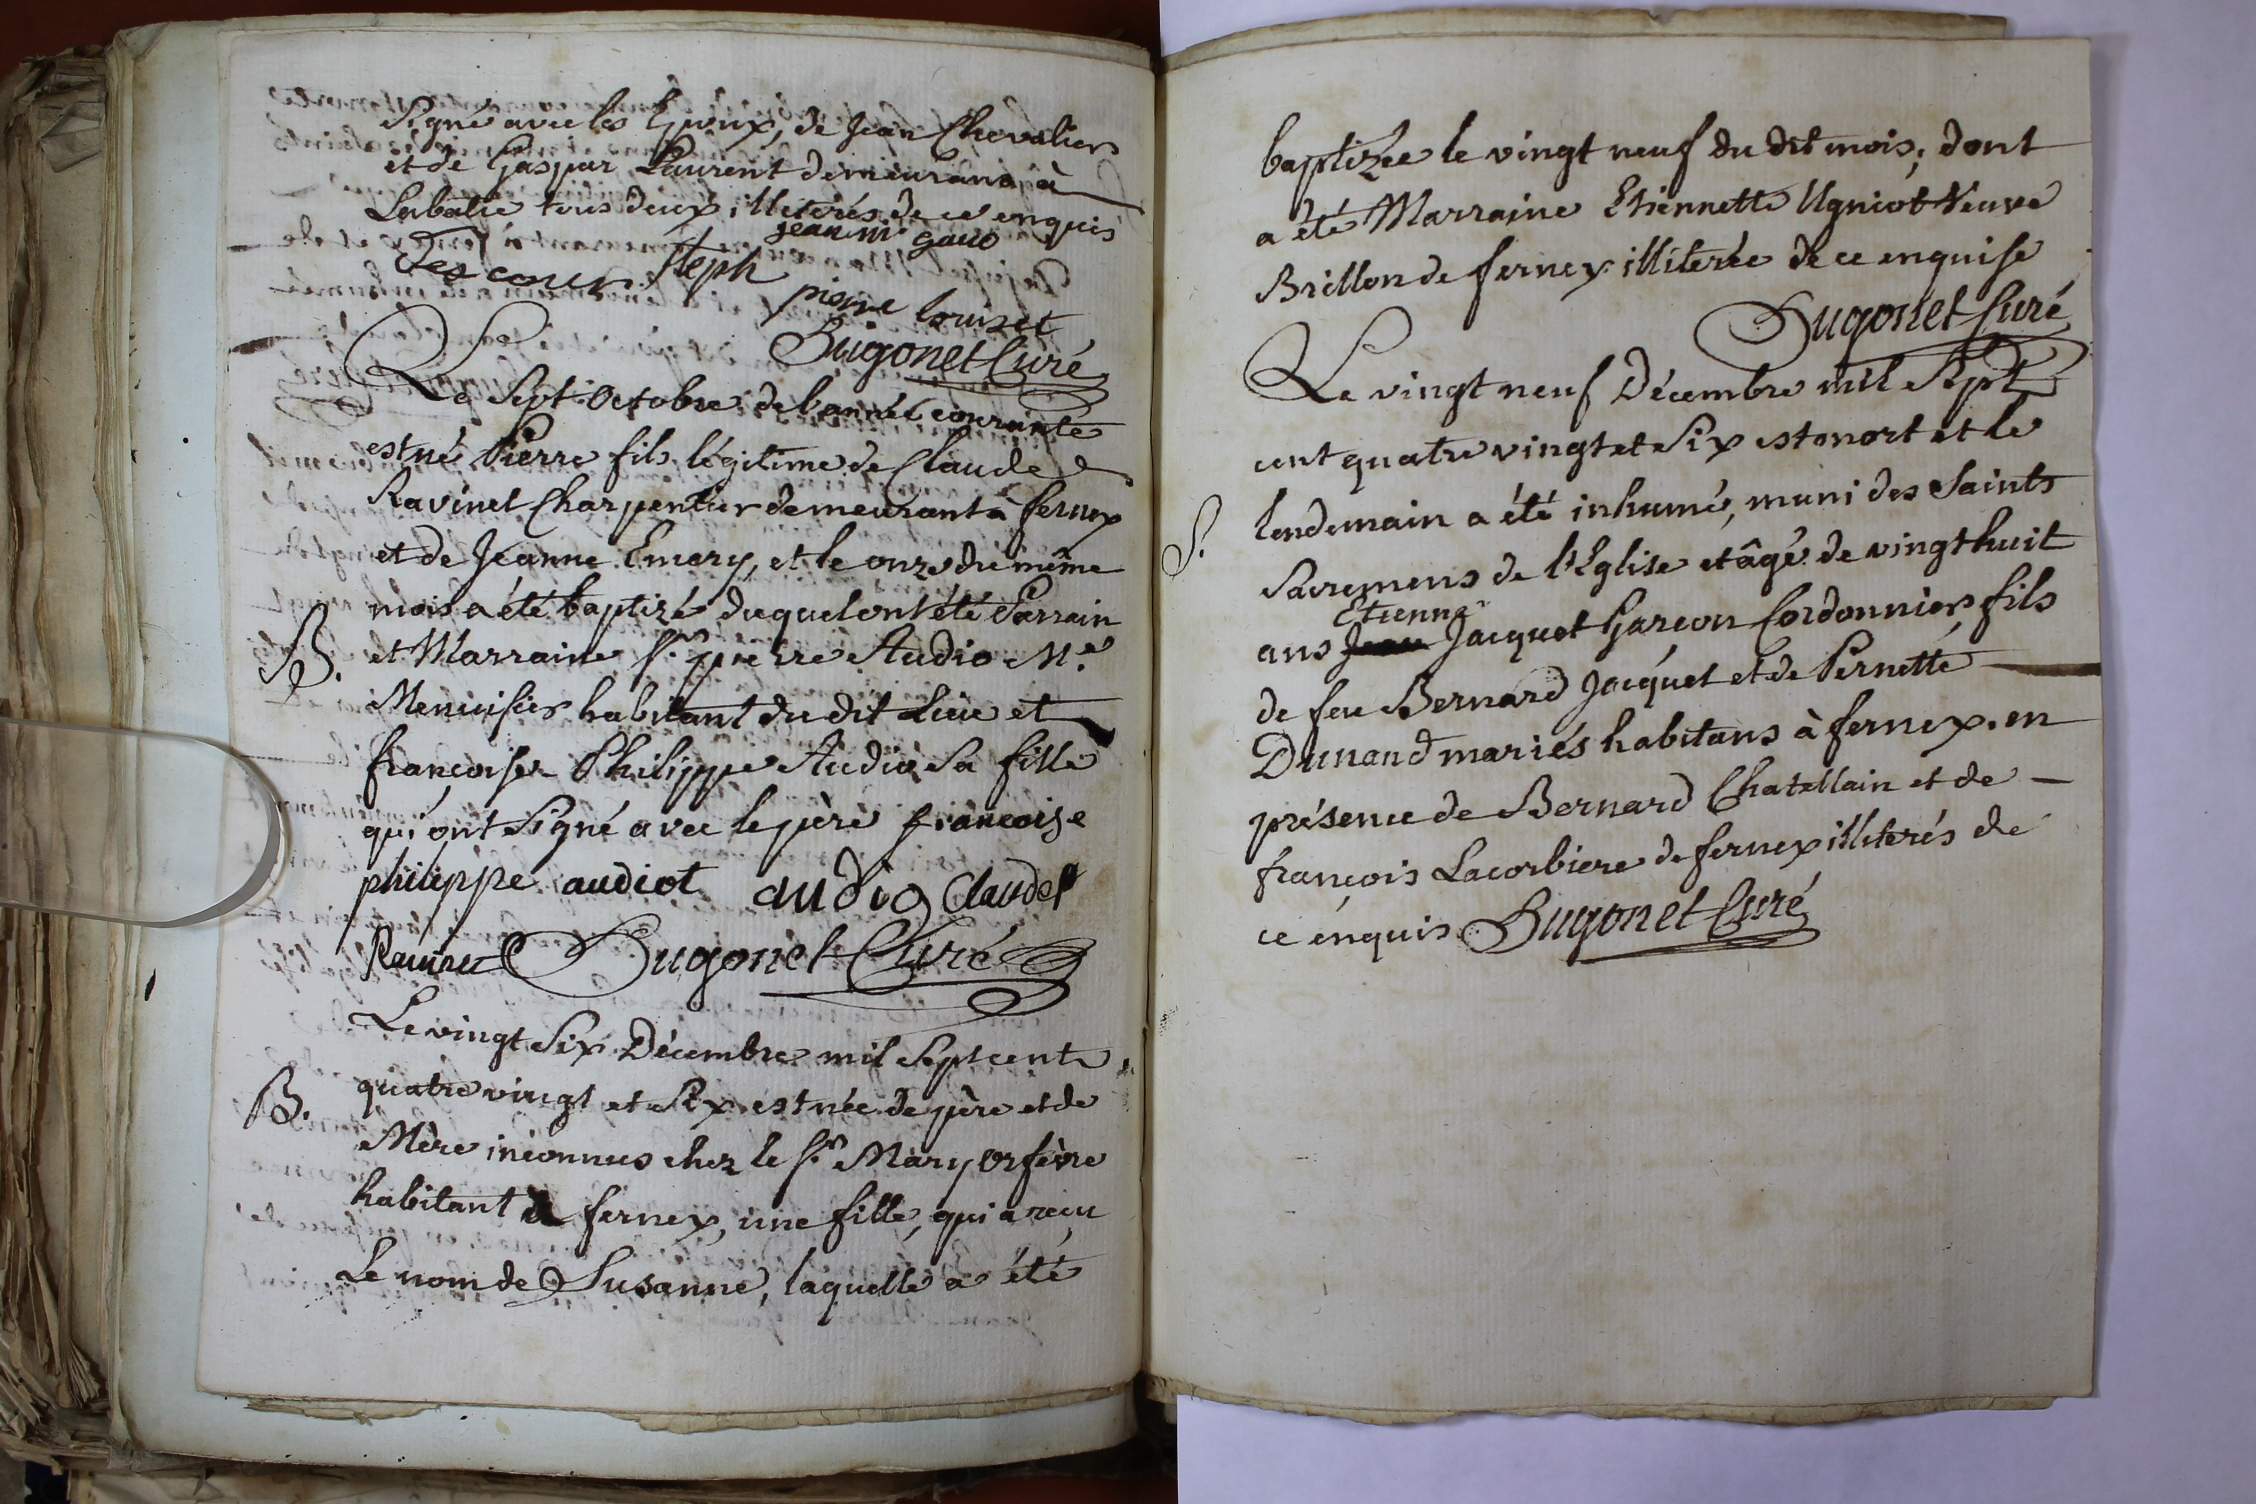 Signé avec les Epoux, de Jean Chevalier
et de Gaspar Laurent demeurans à
Labatie tous deux illiterés de ce enquis
jean
Steph
pierre louiset
Hugonet Curé
Le Sept Octobre de l'année courrante
est né Pierre fils légitime de Claude
Ravinet Charpentier demeurant à fernex
et de Jeanne Emery, et le onze du même
mois a été baptizé duquel ont été Parrain
B. et Marraine Sr. pierre Audio Me.
Menuisier habitant du dit Lieu et
francoise Philippe Audio Sa fille
qui ont Signé avec le père francoise
philippe audiot audio Claude
Ravinet Hugonet Curé
Le vingt Six Décembre mil Sept cent
B. quatre vingt et Six est née de père et de
Mère inconnus chez le Sr. Mary Orfèvre
habitant à fernex, une fille, qui a reçu
Le nom de Susanne, laquelle a été
baptizée le vingt neuf du dit mois; dont
a été Marraine Etiennette Ugniot Veuve
Brillon de fernex illiterée de ce enquise
Hugonet Curé
Le vingt neuf Décembre mil Sept
cent quatre vingt et Six est mort et le
S. lendemain a été inhumé, muni des Saints
Sacremens de l'Eglise et âgé de vingt huit
Etienne
ans Jean Jacquet Garcon Cordonnier, fils
de feu Bernard Jacquet et de Pernette
Dunand mariés habitans à fernex. en
présence de Bernard Chatellain et de
françois Lacorbiere de fernex illiterés de
ce enquis Hugonet Curé